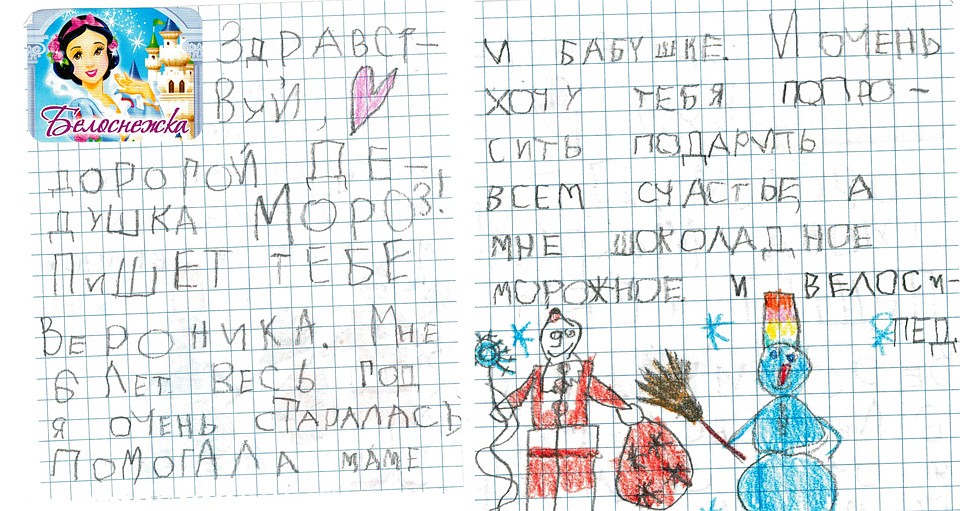 Белоснежка
ЗДРАВСТ-
ВУЙ,
ДОРОГОЙ ДЕ-
ДУШКА МОРОЗ!
ПИШЕТ ТЕБЕ
ВЕРОНИКА. МНЕ
6 ЛЕТ ВЕСЬ ГОД
Я ОЧЕНЬ СТАРАЛАСЬ
ПОМОГАЛА МАМЕ
И БАБУШКЕ. И ОЧЕНЬ
ХОЧУ ТЕБЯ ПОПРО-
СИТЬ ПОДАРИТЬ
ВСЕМ СЧАСТЬЕ, А
МНЕ ШОКОЛАДНОЕ
МОРОЖНОЕ И ВЕЛОСИ-
ПЕД